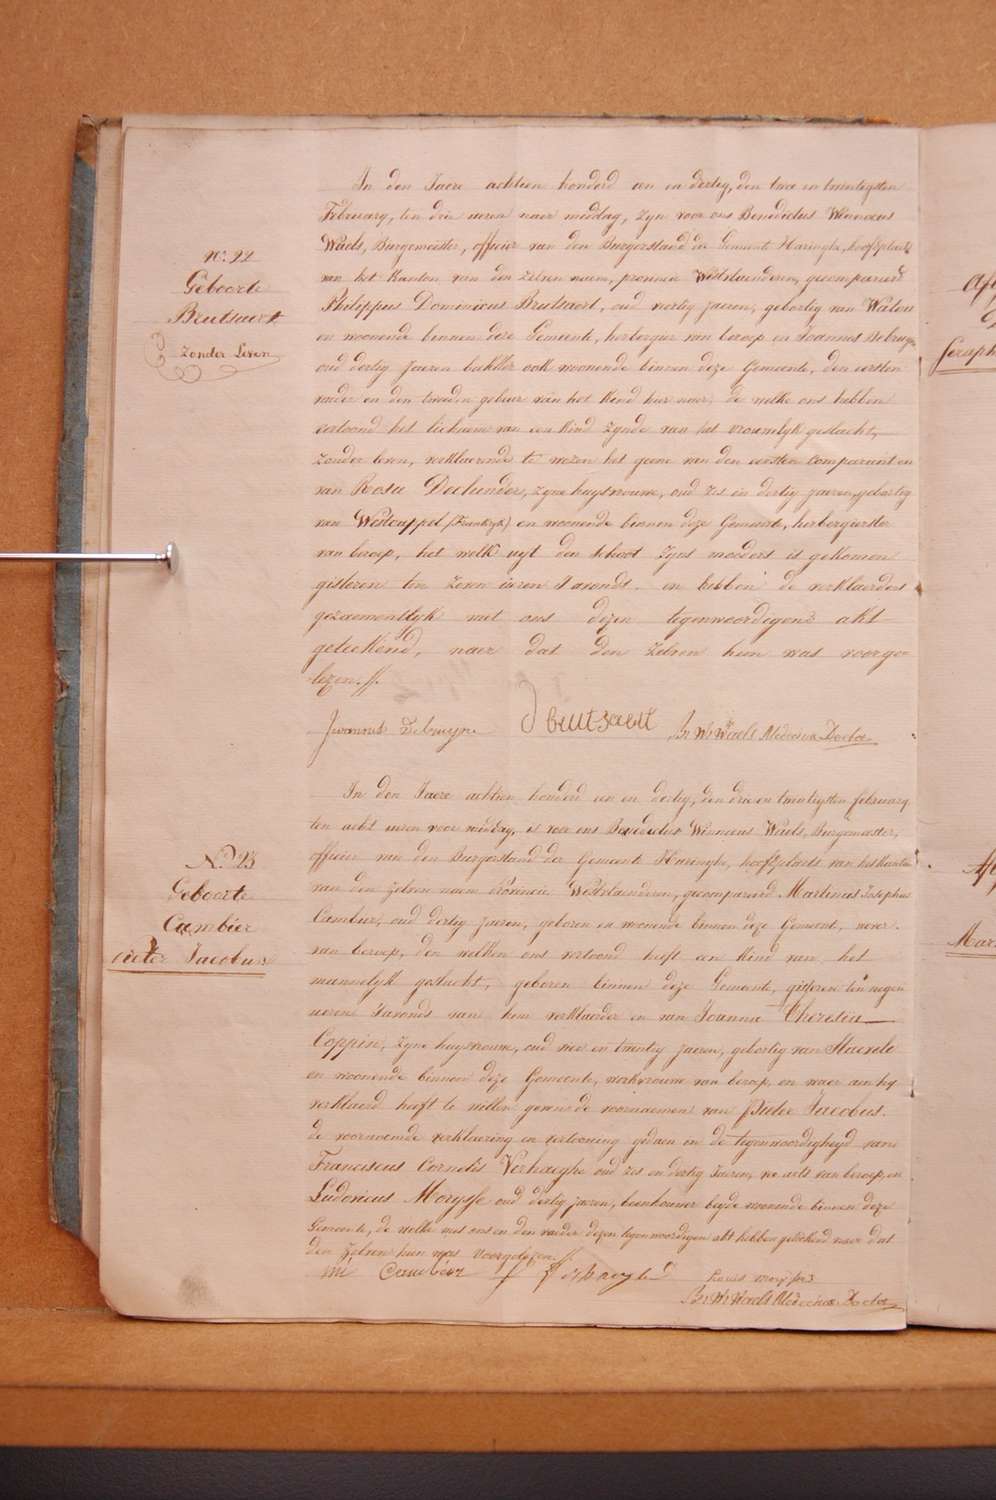 N.º 22
Geboorte
Brutsaert
Zonder Leven
In den Jaere achtien honderd een en dertig, den twee en twintigsten
February, ten drie ueren naer middag, zyn voor ons Benedictus Winnocus
Waels, Burgemeester, officier van den Burgerstand der Gemeente Haringhe, hoofdplaets
van het Kanton van den zelven naem, provincie Westvlaenderen, gecompareerd
Philippus Dominicus Brutsaert, oud veertig jaeren, gebortig van Watou
en woonende binnen deze Gemeente, herbergier van beroep en Joannes Debruyne
oud dertig Jaeren bakker ook woonende binnen deze Gemeente, den eersten
vader en den tweeden gebuer van het kind hier naer, de welke ons hebben
vertoond het lichaem van een kind zynde van het vrouwelyk geslacht,
zonder leven, verklaerende te wezen het geene van den eersten Comparant en
van Rosa Dechunder, zyne huysvrouwe, oud zes en dertig jaeren, gebortig
van Westcappel (Frankryk) en woonende binnen deze Gemeente, herbergierster
van beroep, het welk uyt den schoot zyns moeders is gekomen
gisteren ten zeven ueren s'avonds. en hebben de verklaerders
gezaementlyk met ons dezen tegenwoordigen akt
geteekend, naer dat den zelven hun was voorge-
lezen.
Joannes Debruyne Brutsaert Bs Ws Waels Medecinae Doctor
N.º 23
Geboorte
Cambier
Pieter Jacobus
In den Jaere achtien honderd een en dertig, den drie en twintigsten february
ten acht ueren voor middag, is voor ons Benedictus Winnocus Waels, Burgemeester,
officier van den Burgerstand der Gemeente Haringhe, hoofdplaets van het Kanton
van den zelven naem Provincie Westvlaenderen, gecompareerd Martinus Josephus
Cambier, oud dertig jaeren, geboren en woonende binnen deze Gemeente, wever
van beroep, den welken ons vertoond heeft een kind van het
mannelyk geslacht, geboren binnen deze Gemeente, gisteren ten negen
ueren s'avonds van hem verklaerder en van Joanna Theresia
Coppin, zyne huysvrouwe, oud twee en twintig jaeren, gebortig van Stavele
en woonende binnen deze Gemeente, werkvrouwe van beroep, en waer aen hy
verklaerd heeft te willen geven de voornaemen van Pieter Jacobus.
de voornoemde verklaering en vertooning gedaen en de tegenwoordigheyd van
Franciscus Cornelis Verhaeghe oud zes en dertig Jaeren, van beroep, en
Ludovicus Morysse oud dertig jaeren, beenhouwer beyde woonende binnen deze
Gemeente, de welke met ons en den vaeder dezen tegenwoordigen akt hebben geteekend naer dat
den zelven hun was voorgelezen.
Cambier Louis Morysse
Bs Ws Waels Medecinae Doctor